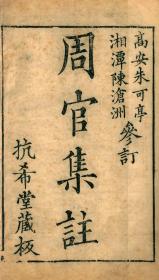 高安朱可亭
湘潭陳滄洲
參訂
周官集註
抗希堂藏板